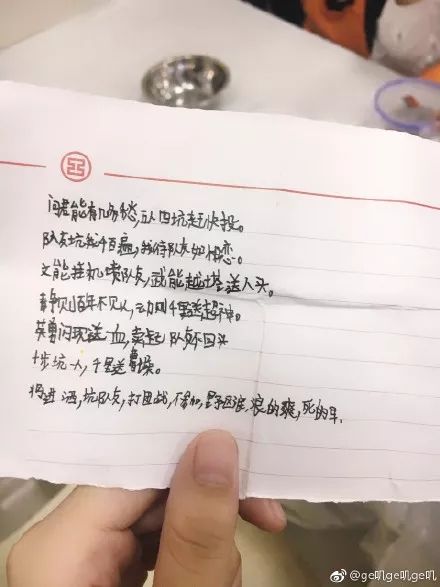 问君能有几多愁,五人四坑赶快投。
队友坑我千百遍,我待队友如初恋。
文能挂机喷队友,武能越塔送人头。
静则百年不见人,动则千里送超神。
英勇闪现送一血,卖起队友不回头
十步坑一人,千里送
将进酒,坑队友,打团战,不参加,野区浪,浪的爽,死的早.
@ge叽ge叽ge叽